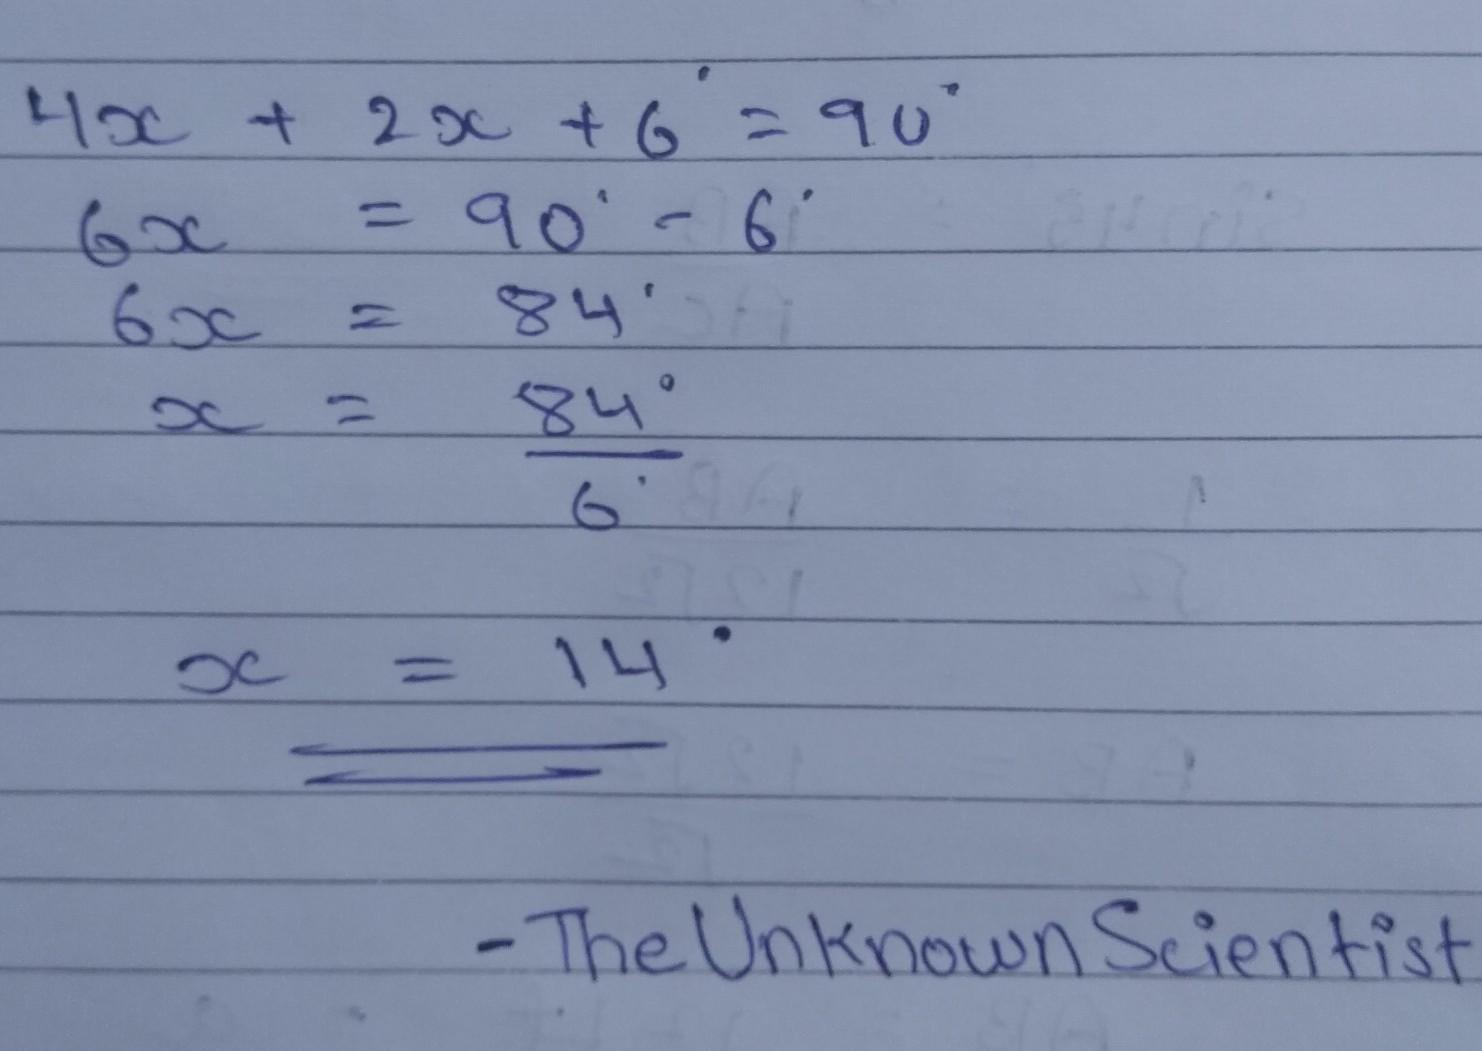 4x + 2x + 6° = 90°
6x = 90° - 6°
6x = 84°
x = 84°
6°
x = 14°
- The Unknown Scientist